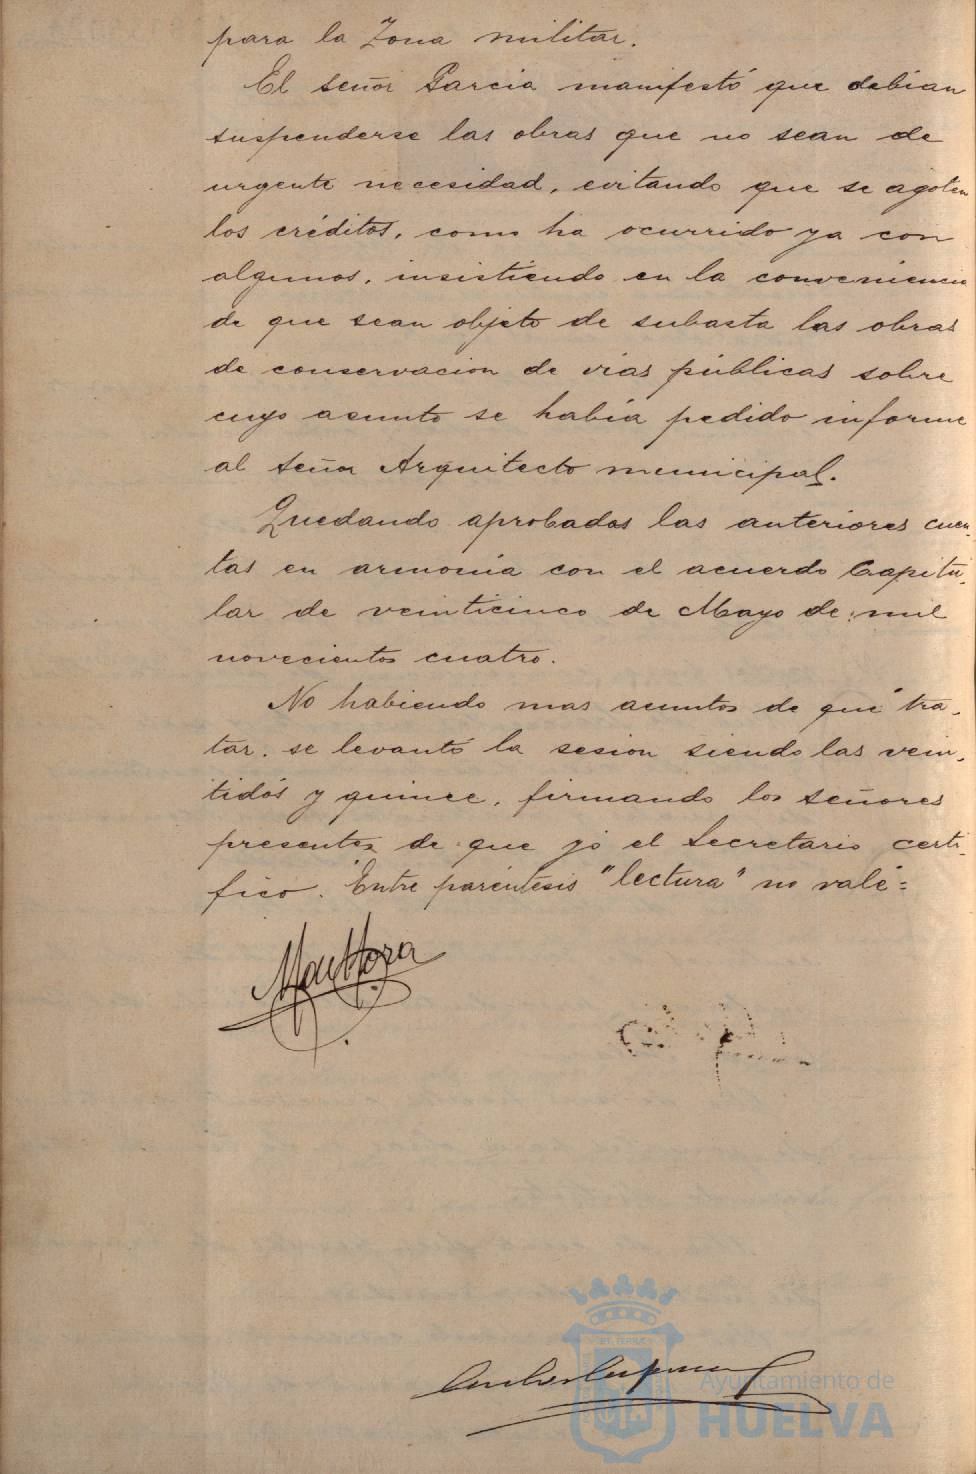 para la Zona militar.
El señor Garcia manifestó que debian
suspenderse las obras que no sean de
urgente necesidad, evitando que se agoten
los créditos, como ha ocurrido ya con
algunos, insistiendo en la conveniencia
de que sean objeto de subasta las obras
de conservacion de vias públicas sobre
cuyo asunto se había pedido informe
al señor Arquitecto municipal.
Quedando aprobadas las anteriores cuen-
tas en armonia con el acuerdo Capitu-
lar de veinticinco de Mayo de mil
novecientos cuatro.
No habiendo mas asuntos de que tra-
tar, se levantó la sesion siendo las vein-
tidós y quince, firmando los señores
presentes de que yo el Secretario certi-
fico. Entre paréntesis "lectura" no vale=
Ayuntamiento de
HUELVA